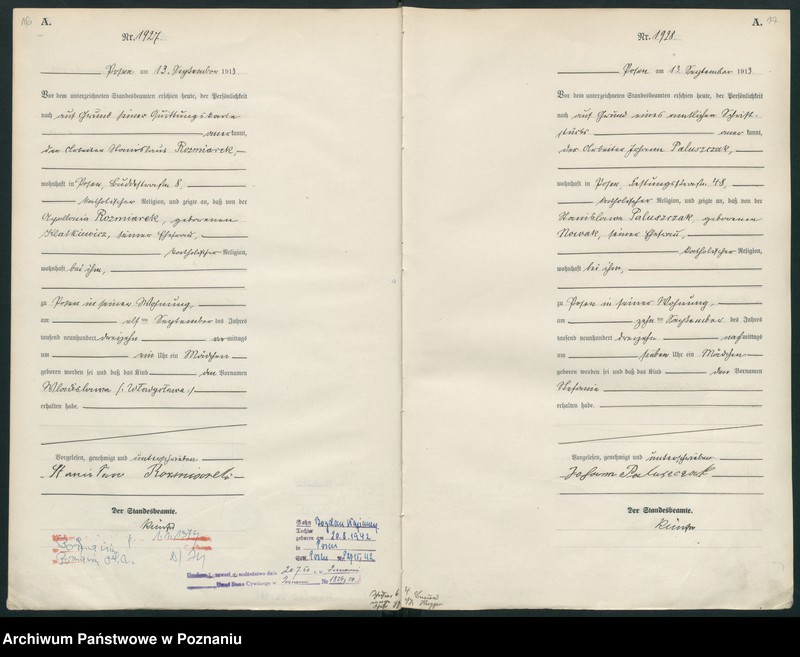 A.
Nr. 1927
Posen am 13. September 1913
Vor dem unterzeichneten Standesbeamten erschien heute, der Persönlichkeit
nach auf Grund seiner Quittungskarte
anerkannt,
der Arbeiter Stanislaus Rozmiarek,
wohnhaft in Posen, Buddestraße 8,
katholischer Religion, und zeigte an, daß von der
Apollonia Rozmiarek, geborenen
Klatkiewicz, seiner Ehefrau,
katholischer Religion,
wohnhaft bei ihm,
zu Posen in seiner Wohnung,
am elften September des Jahres
tausend neunhundert dreizehn vormittags
um ein Uhr ein Mädchen
geboren worden sei und daß das Kind den Vornamen
Wladislawa (: Władysława :)
erhalten habe.
Vorgelesen, genehmigt und unterschrieben
Stanisław Rozmiarek
Der Standesbeamte.
Sohn Bogdan
Tochter
geboren am 20.8.1942
in Posen
Posen
Urząd Stanu Cywilnego w Poznaniu
A. 17
Nr. 1928
Posen am 13. September 1913
Vor dem unterzeichneten Standesbeamten erschien heute, der Persönlichkeit
nach auf Grund eines amtlichen Schrift-
stücks anerkannt,
der Arbeiter Johann Paluszczak,
wohnhaft in Posen, Festungsstraße 48,
katholischer Religion, und zeigte an, daß von der
Stanislawa Paluszczak, geborenen
Nowak, seiner Ehefrau,
katholischer Religion,
wohnhaft bei ihm,
zu Posen in seiner Wohnung,
am zehnten September des Jahres
tausend neunhundert dreizehn nachmittags
um sieben Uhr ein Mädchen
geboren worden sei und daß das Kind den Vornamen
Stefanie
erhalten habe.
Vorgelesen, genehmigt und unterschrieben
Johann Paluszczak
Der Standesbeamte.
Archiwum Państwowe w Poznaniu